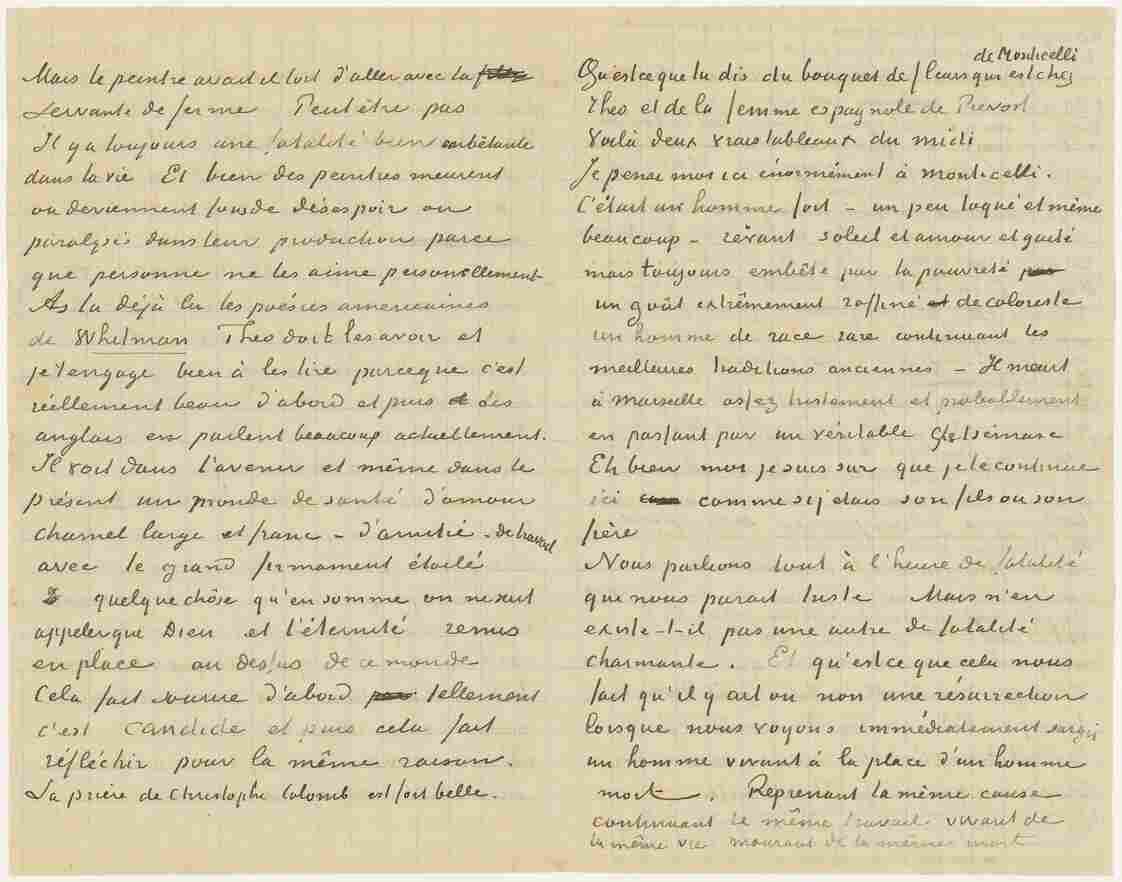 Mais le peintre avait il tort d'aller avec la
servante de ferme Peut être pas
Il y a toujours une fatalité bien embêtante
dans la vie Et bien des peintres meurent
ou deviennent fous de désespoir ou
paralysés dans leur production parce
que personne ne les aime personellement
As tu déjà lu les poésies americaines
de Whitman Theo doit les avoir et
je t'engage bien à les lire parceque c'est
réellement beau d'abord et puis les
anglais en parlent beaucoup actuellement.
Il voit dans l'avenir et même dans le
présent un monde de santé d'amour
charnel large et franc – d'amitié – de travail
avec le grand firmament étoilé
quelque chôse qu'en somme on ne peut
appeler que Dieu et l'éternité remis
en place au dessus de ce monde
Cela fait sourire d'abord tellement
c'est candide et puis cela fait
réfléchir pour la même raison.
La prière de Christophe Colomb est fort belle.
de Monticelli
Qu'est ce que tu dis du bouquet de fleurs qui est chez
Theo et de la femme espagnole de Prevost
Voilà deux vrais tableaux du midi
Je pense moi ici énormément à Monticelli.
C'était un homme fort – un peu toqué et même
beaucoup – rêvant soleil et amour et gaité
mais toujours embêté par la pauvreté
un goût extrêmement raffiné de coloriste
un homme de race rare continuant les
meilleures traditions anciennes – Il meurt
à Marseille assez tristement et probablement
en passant par un véritable Gethsemane
Eh bien moi je suis sur que je le continue
ici comme si j'etais son fils ou son
frère
Nous parlions tout à l'heure de fatalité
que nous parait triste Mais n'en
existe-t-il pas une autre de fatalité
charmante. Et qu'est ce que cela nous
fait qu'il y ait ou non une résurrection
lorsque nous voyons immédiatement surgir
un homme vivant à la place d'un homme
mort. Reprenant la même cause
continuant le même travail vivant de
la même vie mourant de la même mort